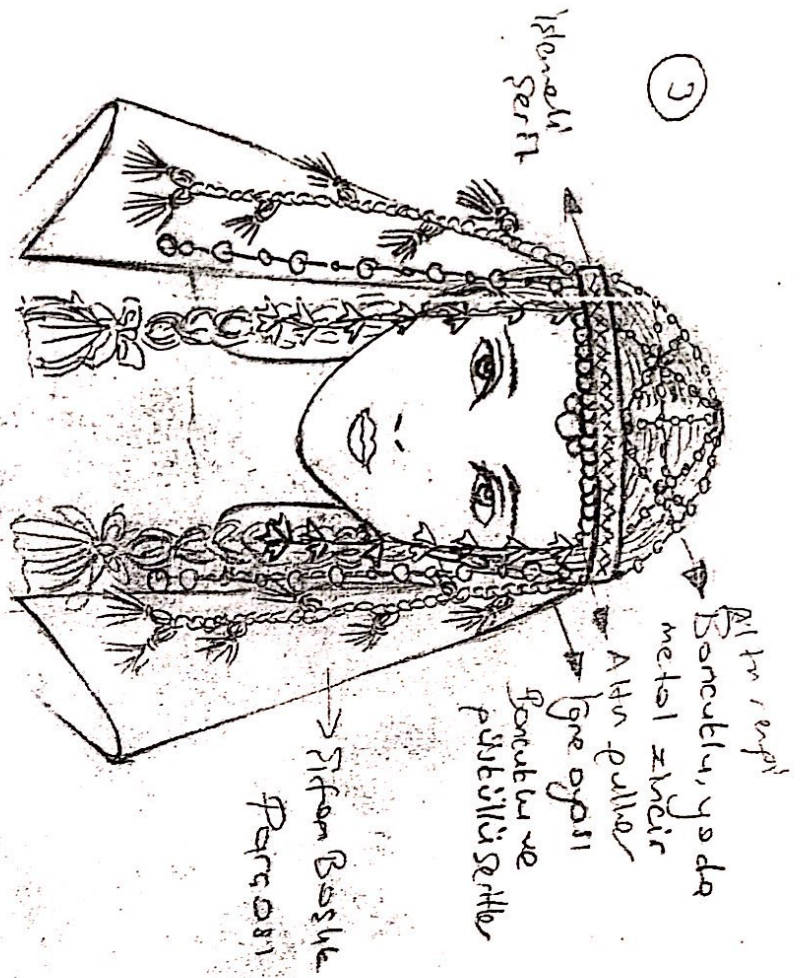 3
İşlemeli
Şerit
Altın rengi
Boncuklu, ya da
metal zincir
Altın pullar
İğne oyası
Boncuklu ve
püsküllü şeritler
Şifon Başlık
Parçası